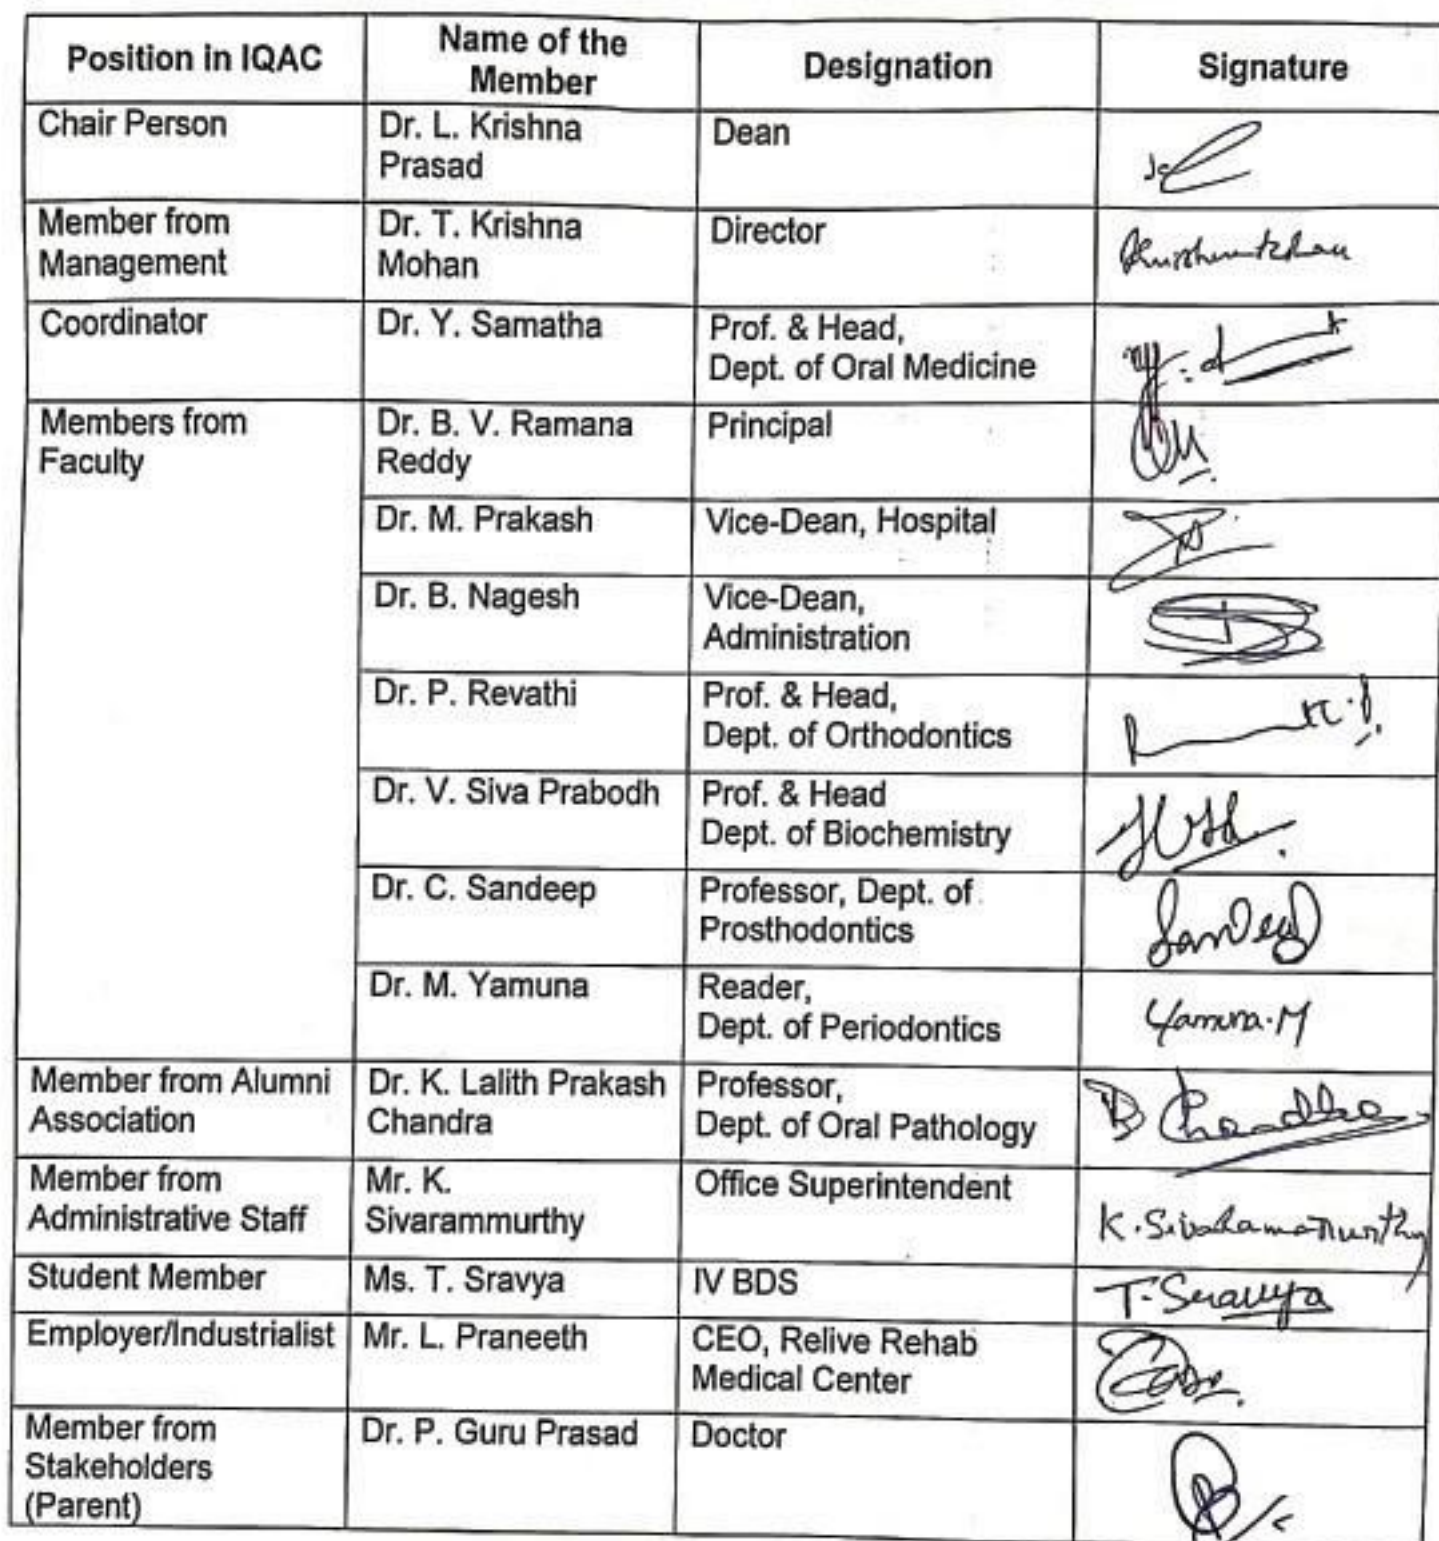 Position in IQAC
Name of the
Member
Designation
Signature
Chair Person
Dr. L. Krishna
Prasad
Dean
Member from
Management
Dr. T. Krishna
Mohan
Director
Coordinator
Dr. Y. Samatha
Prof. & Head,
Dept. of Oral Medicine
Members from
Faculty
Dr. B. V. Ramana
Reddy
Principal
Dr. M. Prakash
Vice-Dean, Hospital
Dr. B. Nagesh
Vice-Dean,
Administration
Dr. P. Revathi
Prof. & Head,
Dept. of Orthodontics
Dr. V. Siva Prabodh
Prof. & Head
Dept. of Biochemistry
Dr. C. Sandeep
Professor, Dept. of
Prosthodontics
Sandeep
Dr. M. Yamuna
Reader,
Dept. of Periodontics
Yamuna.M
Member from Alumni
Association
Dr. K. Lalith Prakash
Chandra
Professor,
Dept. of Oral Pathology
Member from
Administrative Staff
Mr. K.
Sivarammurthy
Office Superintendent
K. Sivaramamurthy
Student Member
Ms. T. Sravya
IV BDS
T. Sravya
Employer/Industrialist
Mr. L. Praneeth
CEO, Relive Rehab
Medical Center
Member from
Stakeholders
(Parent)
Dr. P. Guru Prasad
Doctor